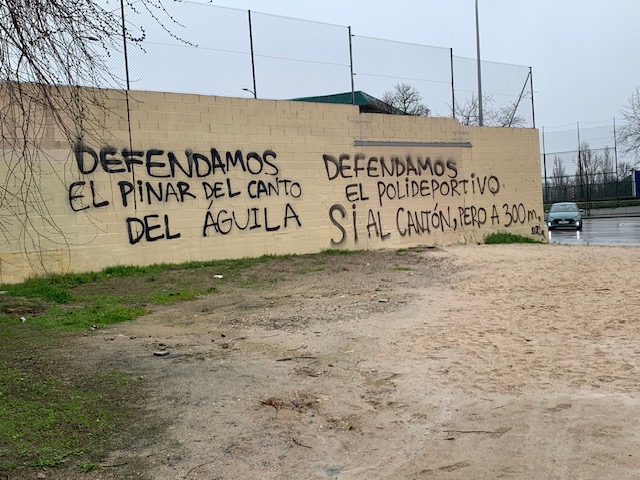 DEFENDAMOS
EL PINAR DEL CANTO
DEL ÁGUILA
DEFENDAMOS
EL POLIDEPORTIVO
SI AL CANTÓN, PERO A 300 m.